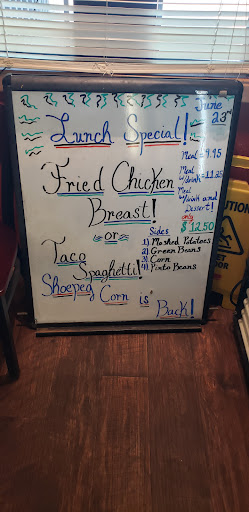 June
23rd
Lunch Special!
Meal = 9.95
Meal
w/drink = 11.25
Meal
w/drink and
Dessert!
only
$12.50
Fried Chicken
Breast!
or
Taco
Spaghetti!
Sides
1) Mashed Potatoes
2) Green Beans
3) Corn
4) Pinto Beans
Shoepeg Corn is
Back!